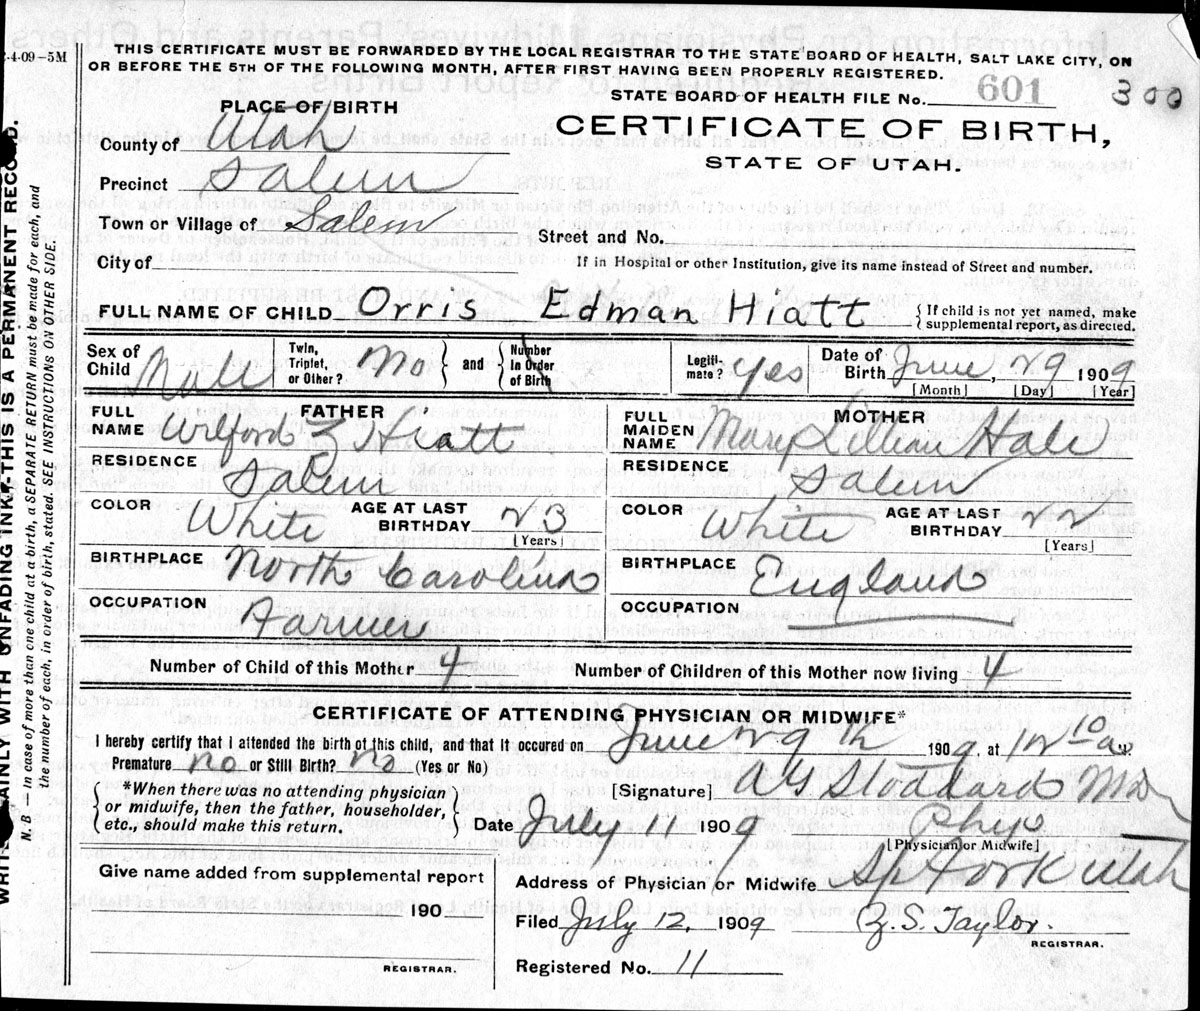 4-09-5M
THIS CERTIFICATE MUST BE FORWARDED BY THE LOCAL REGISTRAR TO THE STATE BOARD OF HEALTH, SALT LAKE CITY, ON
OR BEFORE THE 5TH OF THE FOLLOWING MONTH, AFTER FIRST HAVING BEEN PROPERLY REGISTERED.
STATE BOARD OF HEALTH FILE No. 601 300
PLACE OF BIRTH
CERTIFICATE OF BIRTH,
STATE OF UTAH.
County of Utah
Precinct Salem
Town or Village of Salem
Street and No.
City of
If in Hospital or other Institution, give its name instead of Street and number.
FULL NAME OF CHILD Orris Edman Hiatt { If child is not yet named, make supplemental report, as directed.
Sex of Child Male Twin, Triplet, or Other? No } and { Number in Order of Birth Legiti-mate? Yes Date of Birth June, 29 1909
[Month] [Day] [Year]
FATHER
FULL NAME Wilford Hiatt
RESIDENCE Salem
COLOR White AGE AT LAST BIRTHDAY 23
[Years]
BIRTHPLACE North Carolina
OCCUPATION Farmer
MOTHER
FULL MAIDEN NAME Mary Lillian Hale
RESIDENCE Salem
COLOR White AGE AT LAST BIRTHDAY 22
[Years]
BIRTHPLACE England
OCCUPATION
Number of Child of this Mother 4 Number of Children of this Mother now living 4
CERTIFICATE OF ATTENDING PHYSICIAN OR MIDWIFE*
I hereby certify that I attended the birth of this child, and that it occured on June 29th 1909, at 12 10 a.M.
Premature no or Still Birth? no (Yes or No)
[Signature] W Stoddard
*When there was no attending physician
or midwife, then the father, householder,
etc., should make this return.
Date July 11 1909 Phys
[Physician or Midwife]
Give name added from supplemental report
Address of Physician or Midwife Sp Fork Utah
190
Filed July 12, 1909 Z. S. Taylor.
REGISTRAR.
REGISTRAR.
Registered No. 11
AINLY WITH UNFADING INK.-THIS IS A PERMANENT RECORD.
N.B - In case of more than one child at a birth, a SEPARATE RETURN must be made for each, and
the number of each, in order of birth, stated. SEE INSTRUCTIONS ON OTHER SIDE.